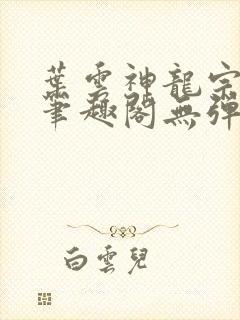 葉雲神龍宗
筆趣閣無彈
白雲兒